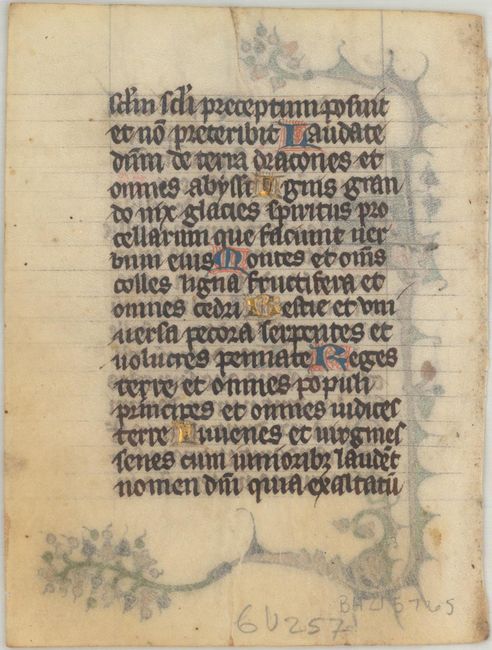 sclm scli preceptum posuit
et nō preteribit Laudate
dnm de terra dracones et
omnes abyssi Ignis gran
do nix glacies spiritus pro
cellarum que faciunt ver
bum eius Montes et oms
colles ligna fructifera et
omnes cedri Bestie et vni
uersa pecora serpentes et
uolucres pennate Reges
terre et omnes populi
principes et omnes iudices
terre Iuuenes et uirgines
senes cum iunioribz laudēt
nomen dnī quia exaltatū
6V257